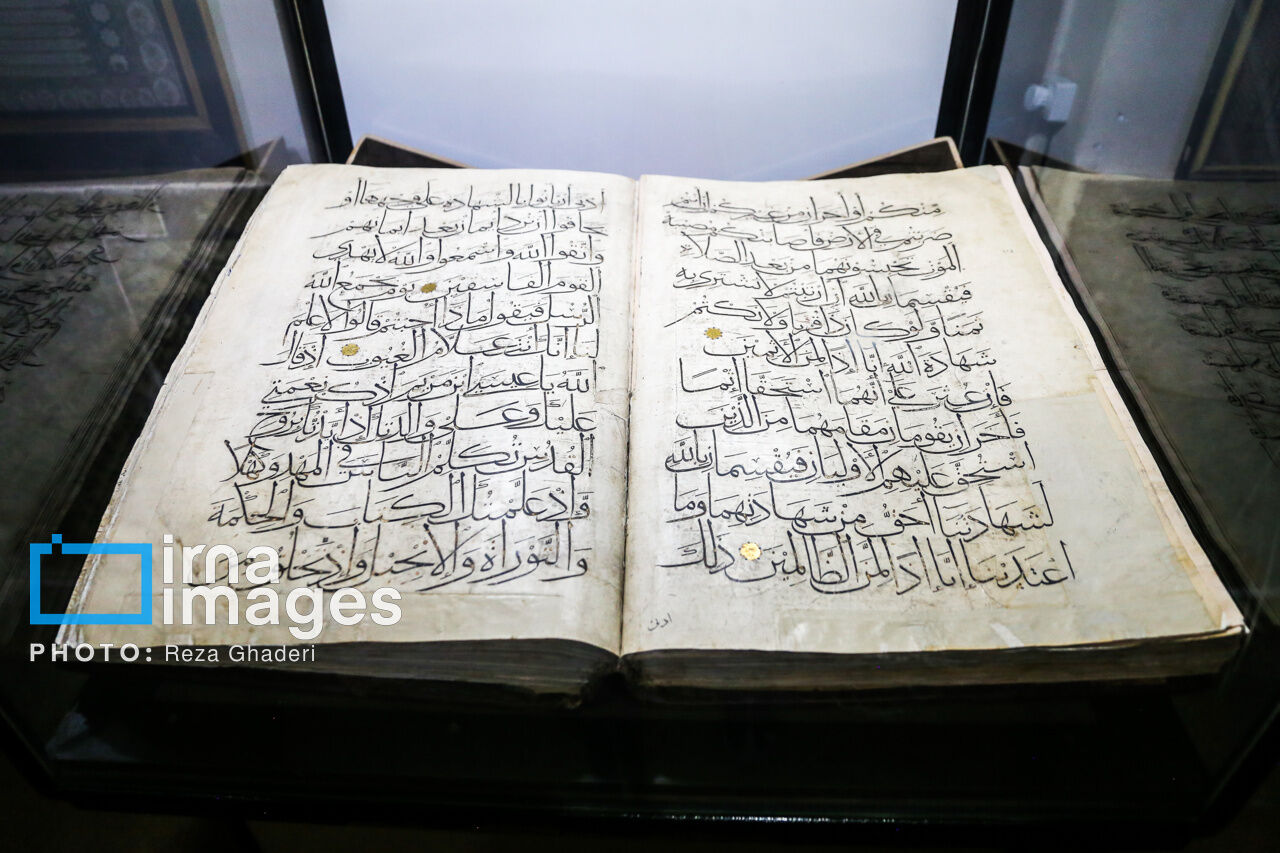 منكم او اخران من غيركم ان انتم
ضربتم في الارض فاصابتكم مصيبة
الموت تحبسونهما من بعد الصلاة
فيقسمان بالله ان ارتبتم لا نشتري به
ثمنا ولو كان ذا قربى ولا نكتم
شهادة الله إنا إذا لمن الآثمين
فان عثر على أنهما استحقا إثما
فاخران يقومان مقامهما من الذين
استحق عليهم الأوليان فيقسمان بالله
لشهادتنا أحق من شهادتهما وما
اعتدينا إنا إذا لمن الظالمين ذلك
ادنى
ادنى ان ياتوا بالشهادة على وجهها او
يخافوا ان ترد ايمان بعد ايمانهم
واتقوا الله واسمعوا والله لا يهدي
القوم الفاسقين يوم يجمع الله
الرسل فيقول ماذا اجبتم قالوا لا علم
لنا إنك انت علام الغيوب اذ قال
الله يا عيسى ابن مريم اذكر نعمتي
عليك وعلى والدتك إذ أيدتك بروح
القدس تكلم الناس في المهد وكهلا
وإذ علمتك الكتاب والحكمة
والتوراة والإنجيل وإذ تخلق من
irna
images
PHOTO: Reza Ghaderi